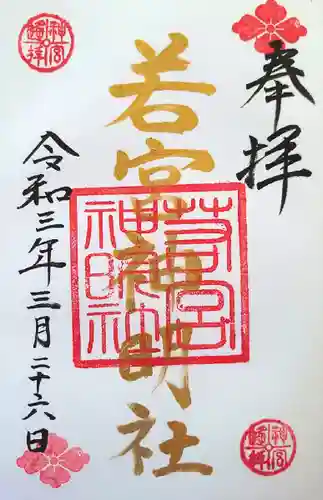 奉拝
若宮神明社
若宮神明社
令和三年三月二十六日
神宮遙拝
神宮遙拝